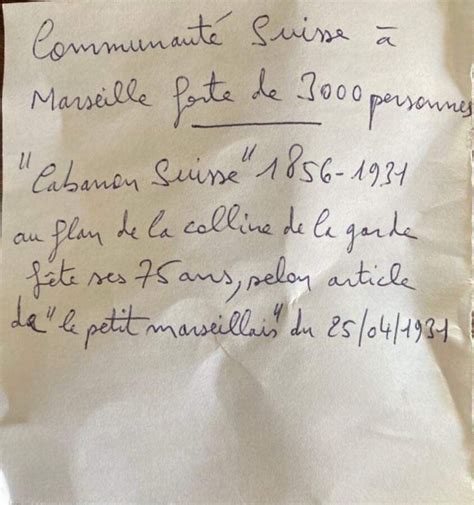 Communauté Suisse à
Marseille forte de 3000 personnes
"Cabanon Suisse" 1856-1931
au flan de la colline de la garde
fête ses 75 ans, selon article
de "le petit marseillais" du 25/04/1931